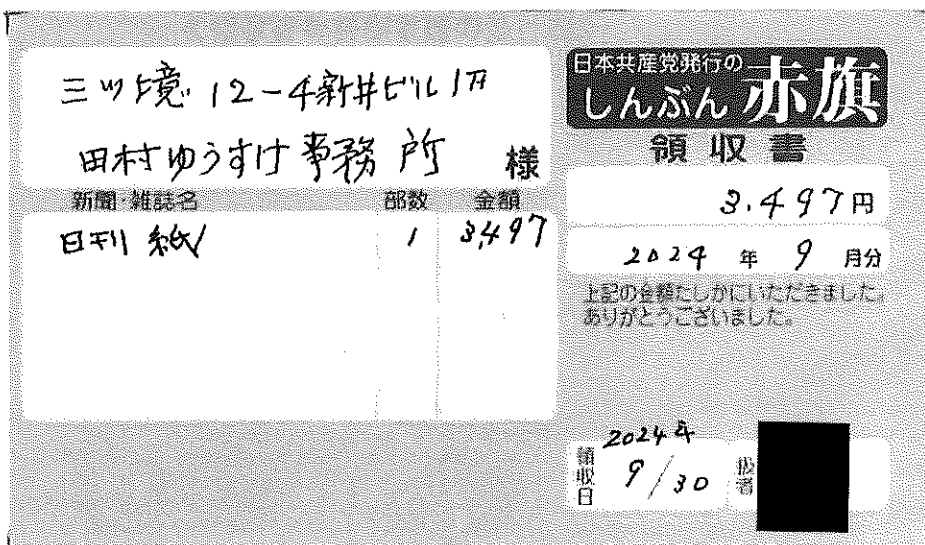 三ツ境 12-4新井ビル1F
田村ゆうすけ事務所 様
新聞・雑誌名 部数 金額
日刊紙 1 3,497
日本共産党発行の
しんぶん 赤旗
領収書
3.497円
2024 年 9 月分
上記の金額たしかにいただきました。
ありがとうございました。
2024年
領収日 9/30 扱者